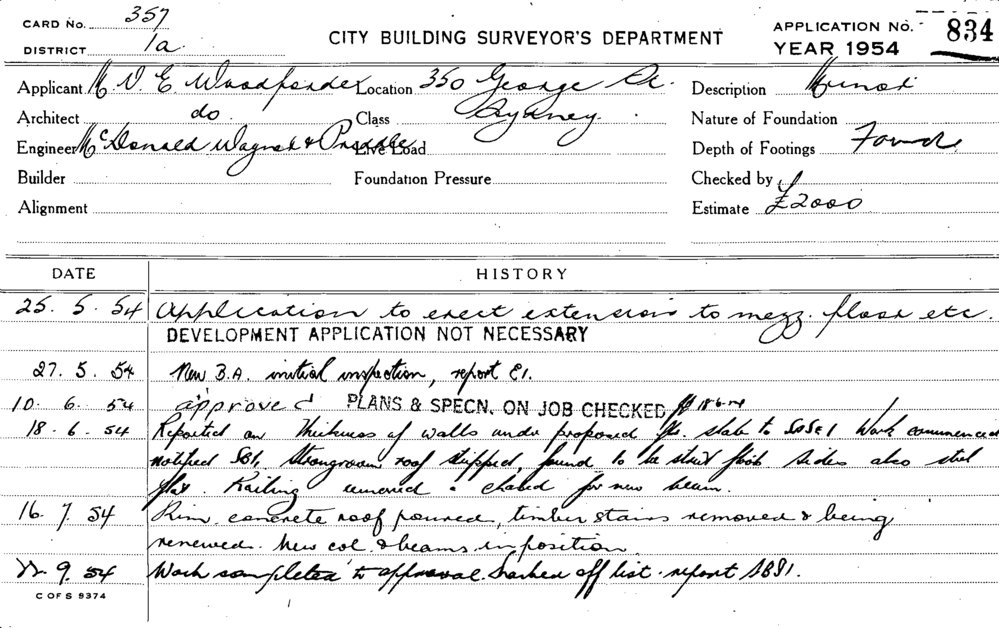 CARD NO. 357
DISTRICT 1a
CITY BUILDING SURVEYOR'S DEPARTMENT
APPLICATION NO. 834
YEAR 1954
Applicant V. E. Woodforde
Location 350 George St.
Description
Architect do.
Class Sydney.
Nature of Foundation
Engineer McDonald Wagner & Priddle
Live Load
Depth of Footings
Builder
Foundation Pressure
Checked by
Alignment
Estimate £2000
DATE HISTORY
25. 5. 54 Application to erect extension to mezz. floor etc.
DEVELOPMENT APPLICATION NOT NECESSARY
27. 5. 54 New B.A. initial inspection, report E1.
10. 6. 54 approved PLANS & SPECN. ON JOB CHECKED
18. 6. 54 Reported on thickness of walls under proposed slab to Work commenced
notified Strongroom roof stripped, found to be steel sides also steel
Railing removed. for new beam.
16. 7. 54 concrete roof poured, timber stairs removed & being
renewed. New col. & beams in position.
22. 9. 54 Work completed to approval. marked off list. report
C OF S 9374